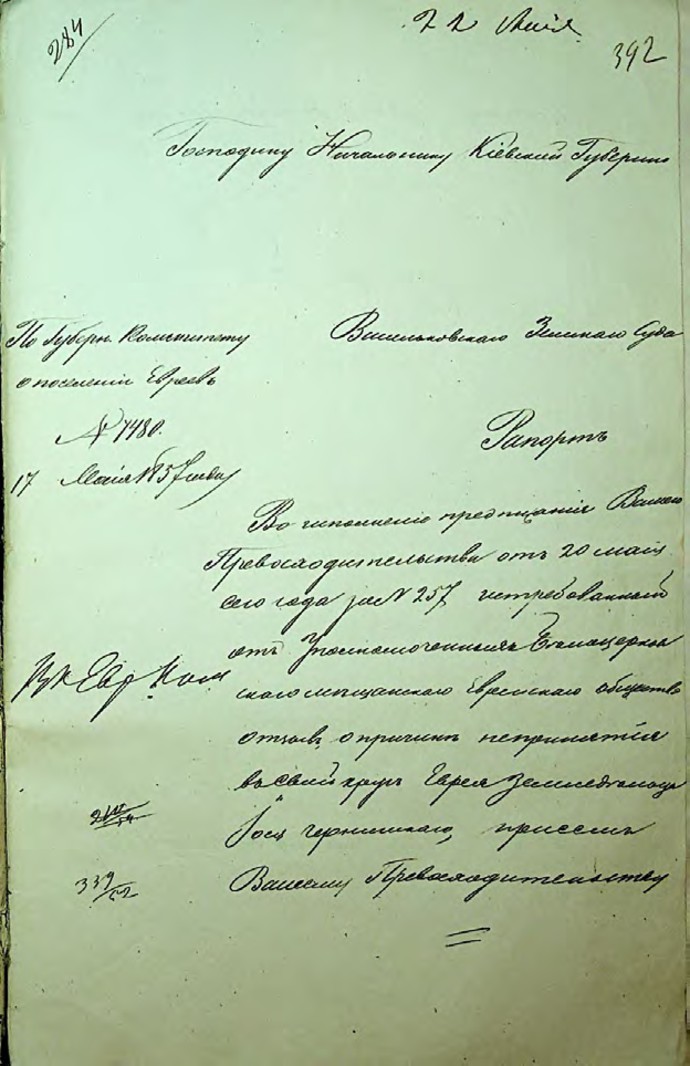 284
22 Маія
392
Господину Начальнику Кіевской Губерніи
По Губерн. Комитету
о поселеніи Евреевъ
№ 7480.
17 Маія 1857 года
Васильковскаго Земскаго Суда
Рапортъ
Во исполненіе предписанія Вашего
Превосходительства от 20 маія
сего года за № 257, истребованный
отъ Уполномоченныхъ Бѣлоцерков
скаго мѣщанскаго Еврейскаго общества
отзывъ, о причинѣ непринятія
въ свой кругъ Еврея Земледѣльца
Чернинскаго, присемъ
Вашему Превосходительству
Евр Ком
339/52